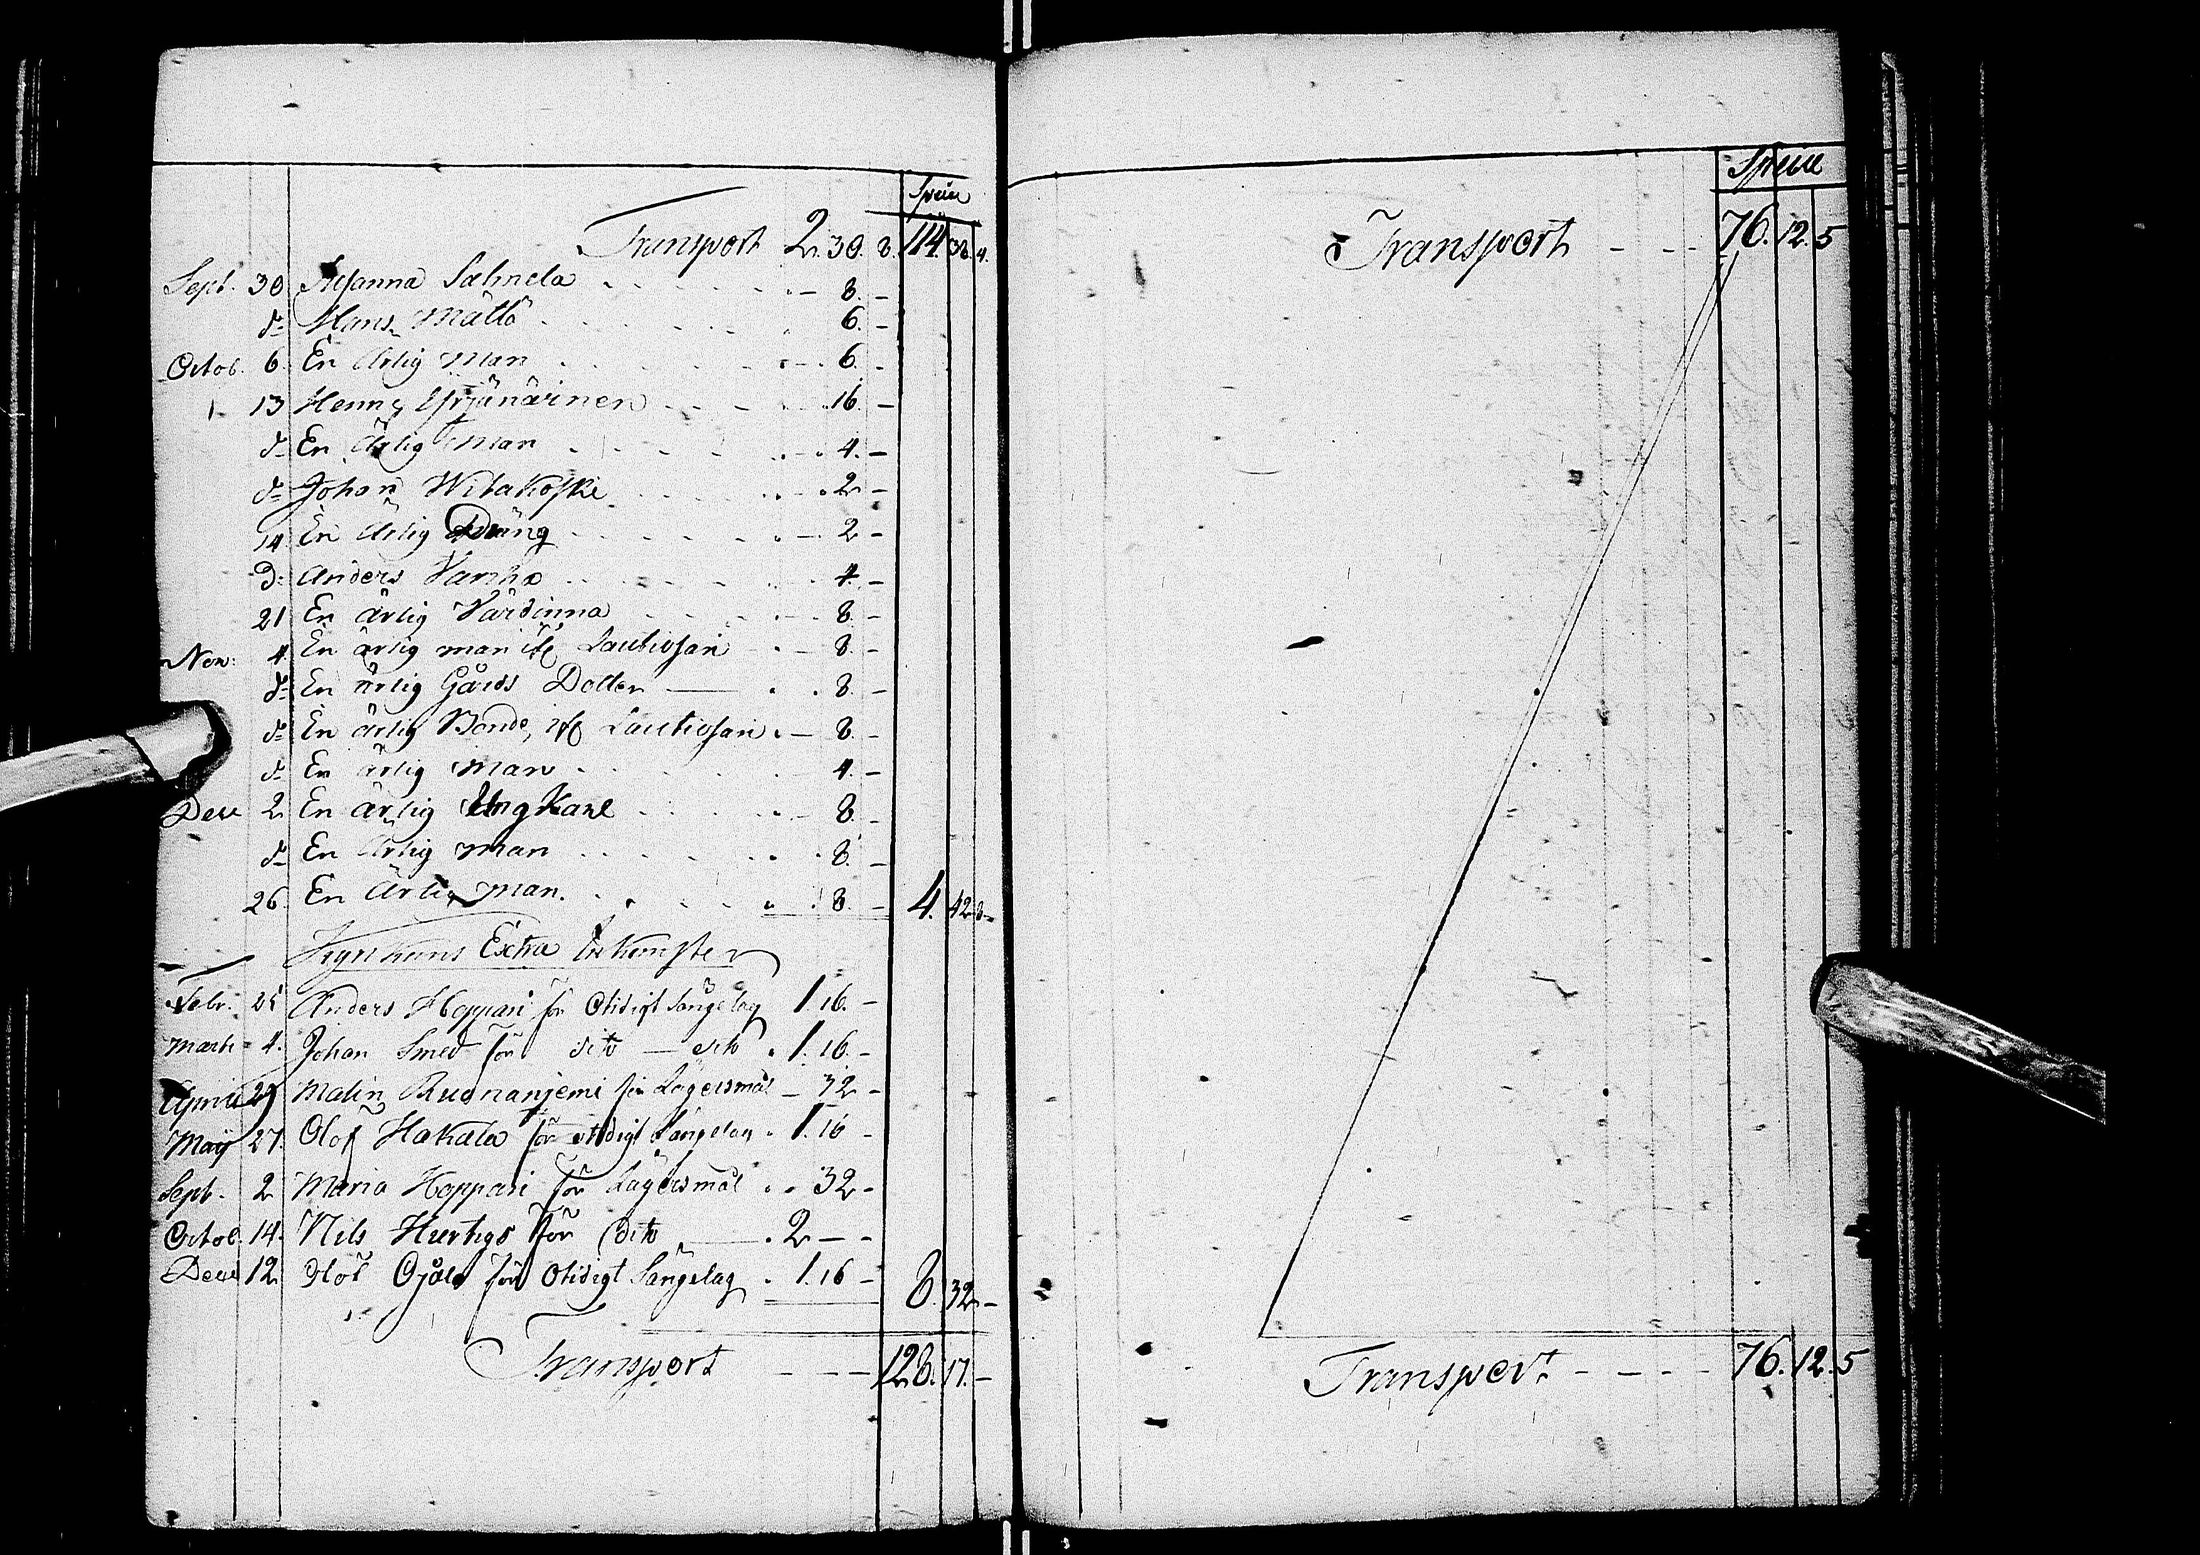 Specie
Transport 2. 30. 8. 114. 38. 4.
Sept. 30 Susanna Salmela - 8. -
d:o Hans Mattb 6. -
Octob. 6. En Ärlig Man - 6. -
13 Henric Yrjänäinen 16. -
d:o En Ärlig Man 4. -
d:o Johan Witakoski 2 -
14. En Ärlig Dräng - 2 -
D:o Anders Vanha 4. -
21 En ärlig Värdinna - 8. -
Nov: 4. En ärlig man if: Lautiosari - 8. -
d:o En ärlig Gårds Dotter 8. -
d:o En ärlig Bonde, if: Lautiosari - 8. -
d:o En ärlig Man 4. -
Dece 2 En ärlig Ung Karl 8. -
d:o En Ärlig man 8. -
26. En Ärlig man. 8. - 4. 42. 8 -
Kyrckans Extra Inkomster
Febr: 25 Anders Hoppari för Otidigt Sängelag 1. 16. -
Marti 4. Johan Smed för dito — dito 1. 16. -
April 29 Malin Ruonanjemi för Lägersmål - 32 -
Maij 27. Olof Hakala för otidigt Sängelag 1. 16 -
Sept. 2 Maria Hoppari för Lägersmål 32 -
Octob. 14. Nils Hurtigs för dito 2 - -
Dece 12 Olof Ojala för Otidigt Sängelag 1. 16 - 8. 32 -
Transport - - - 128. 17. -
Specie
Transport - - - 76. 12. 5
Transport - - - - 76. 12. 5